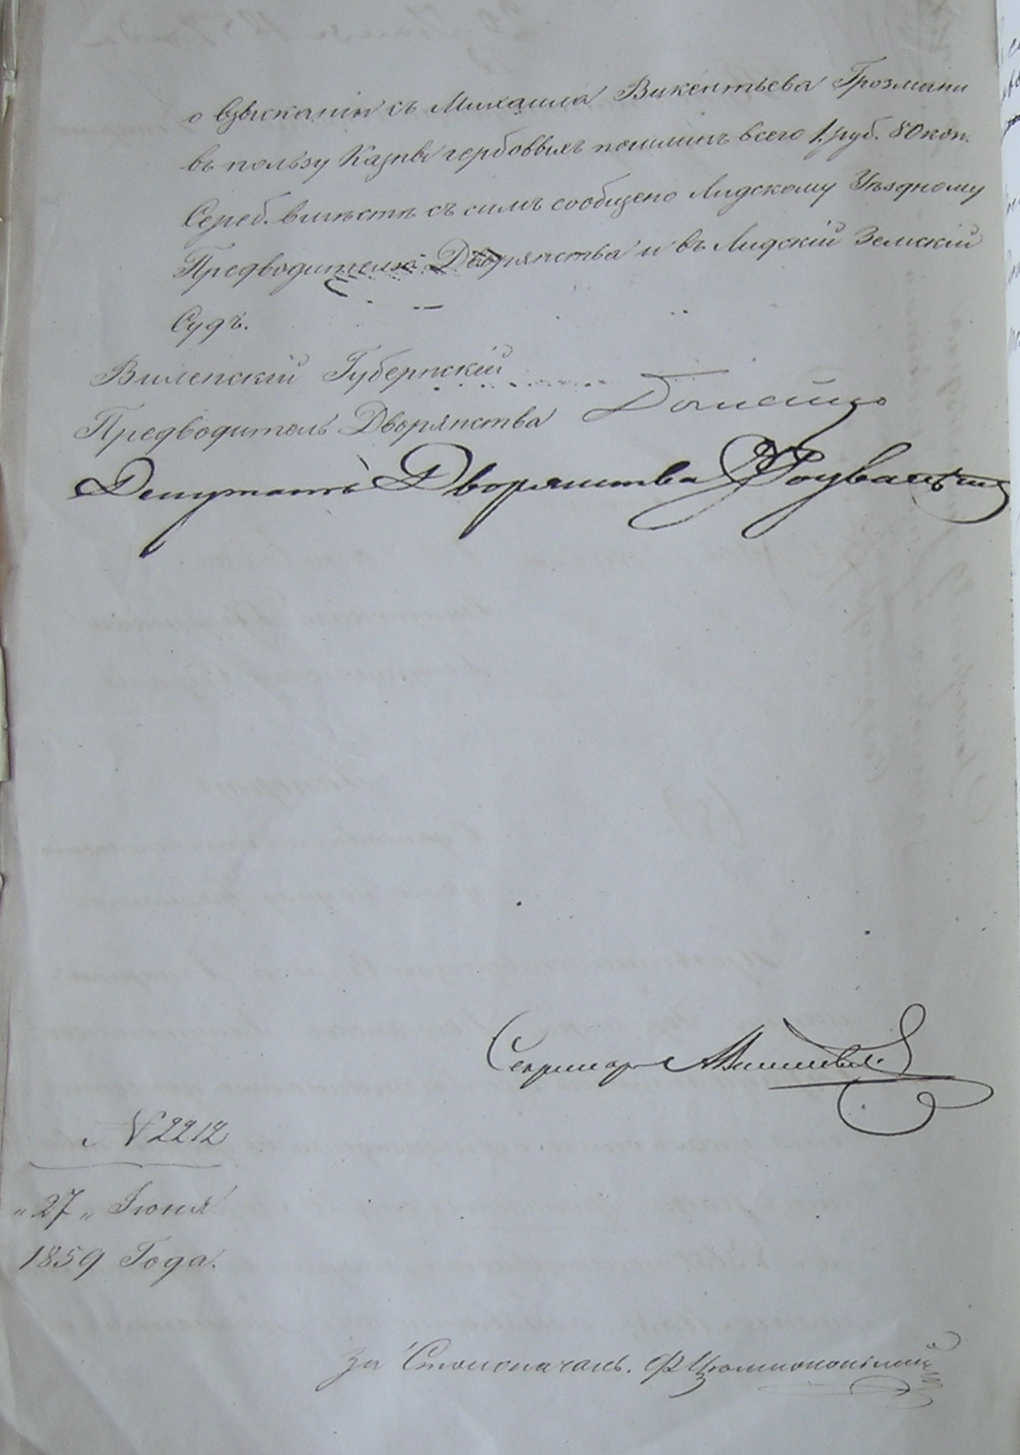 о взысканіи съ Михаила Викентьева Грозмани
въ пользу Казны гербовыхъ пошлинъ всего 1 руб. 80 коп.
Сереб. вмѣстѣ съ симъ сообщено Лидскому Уѣздному
Предводителю Дворянства и въ Лидскій Земскій
Судъ.
Виленскій Губернскій
Предводитель Дворянства Домейко
Депутатъ Дворянства
Секретарь
N 2212
„27„ Іюня
1859 Года.
За Столоначаль.